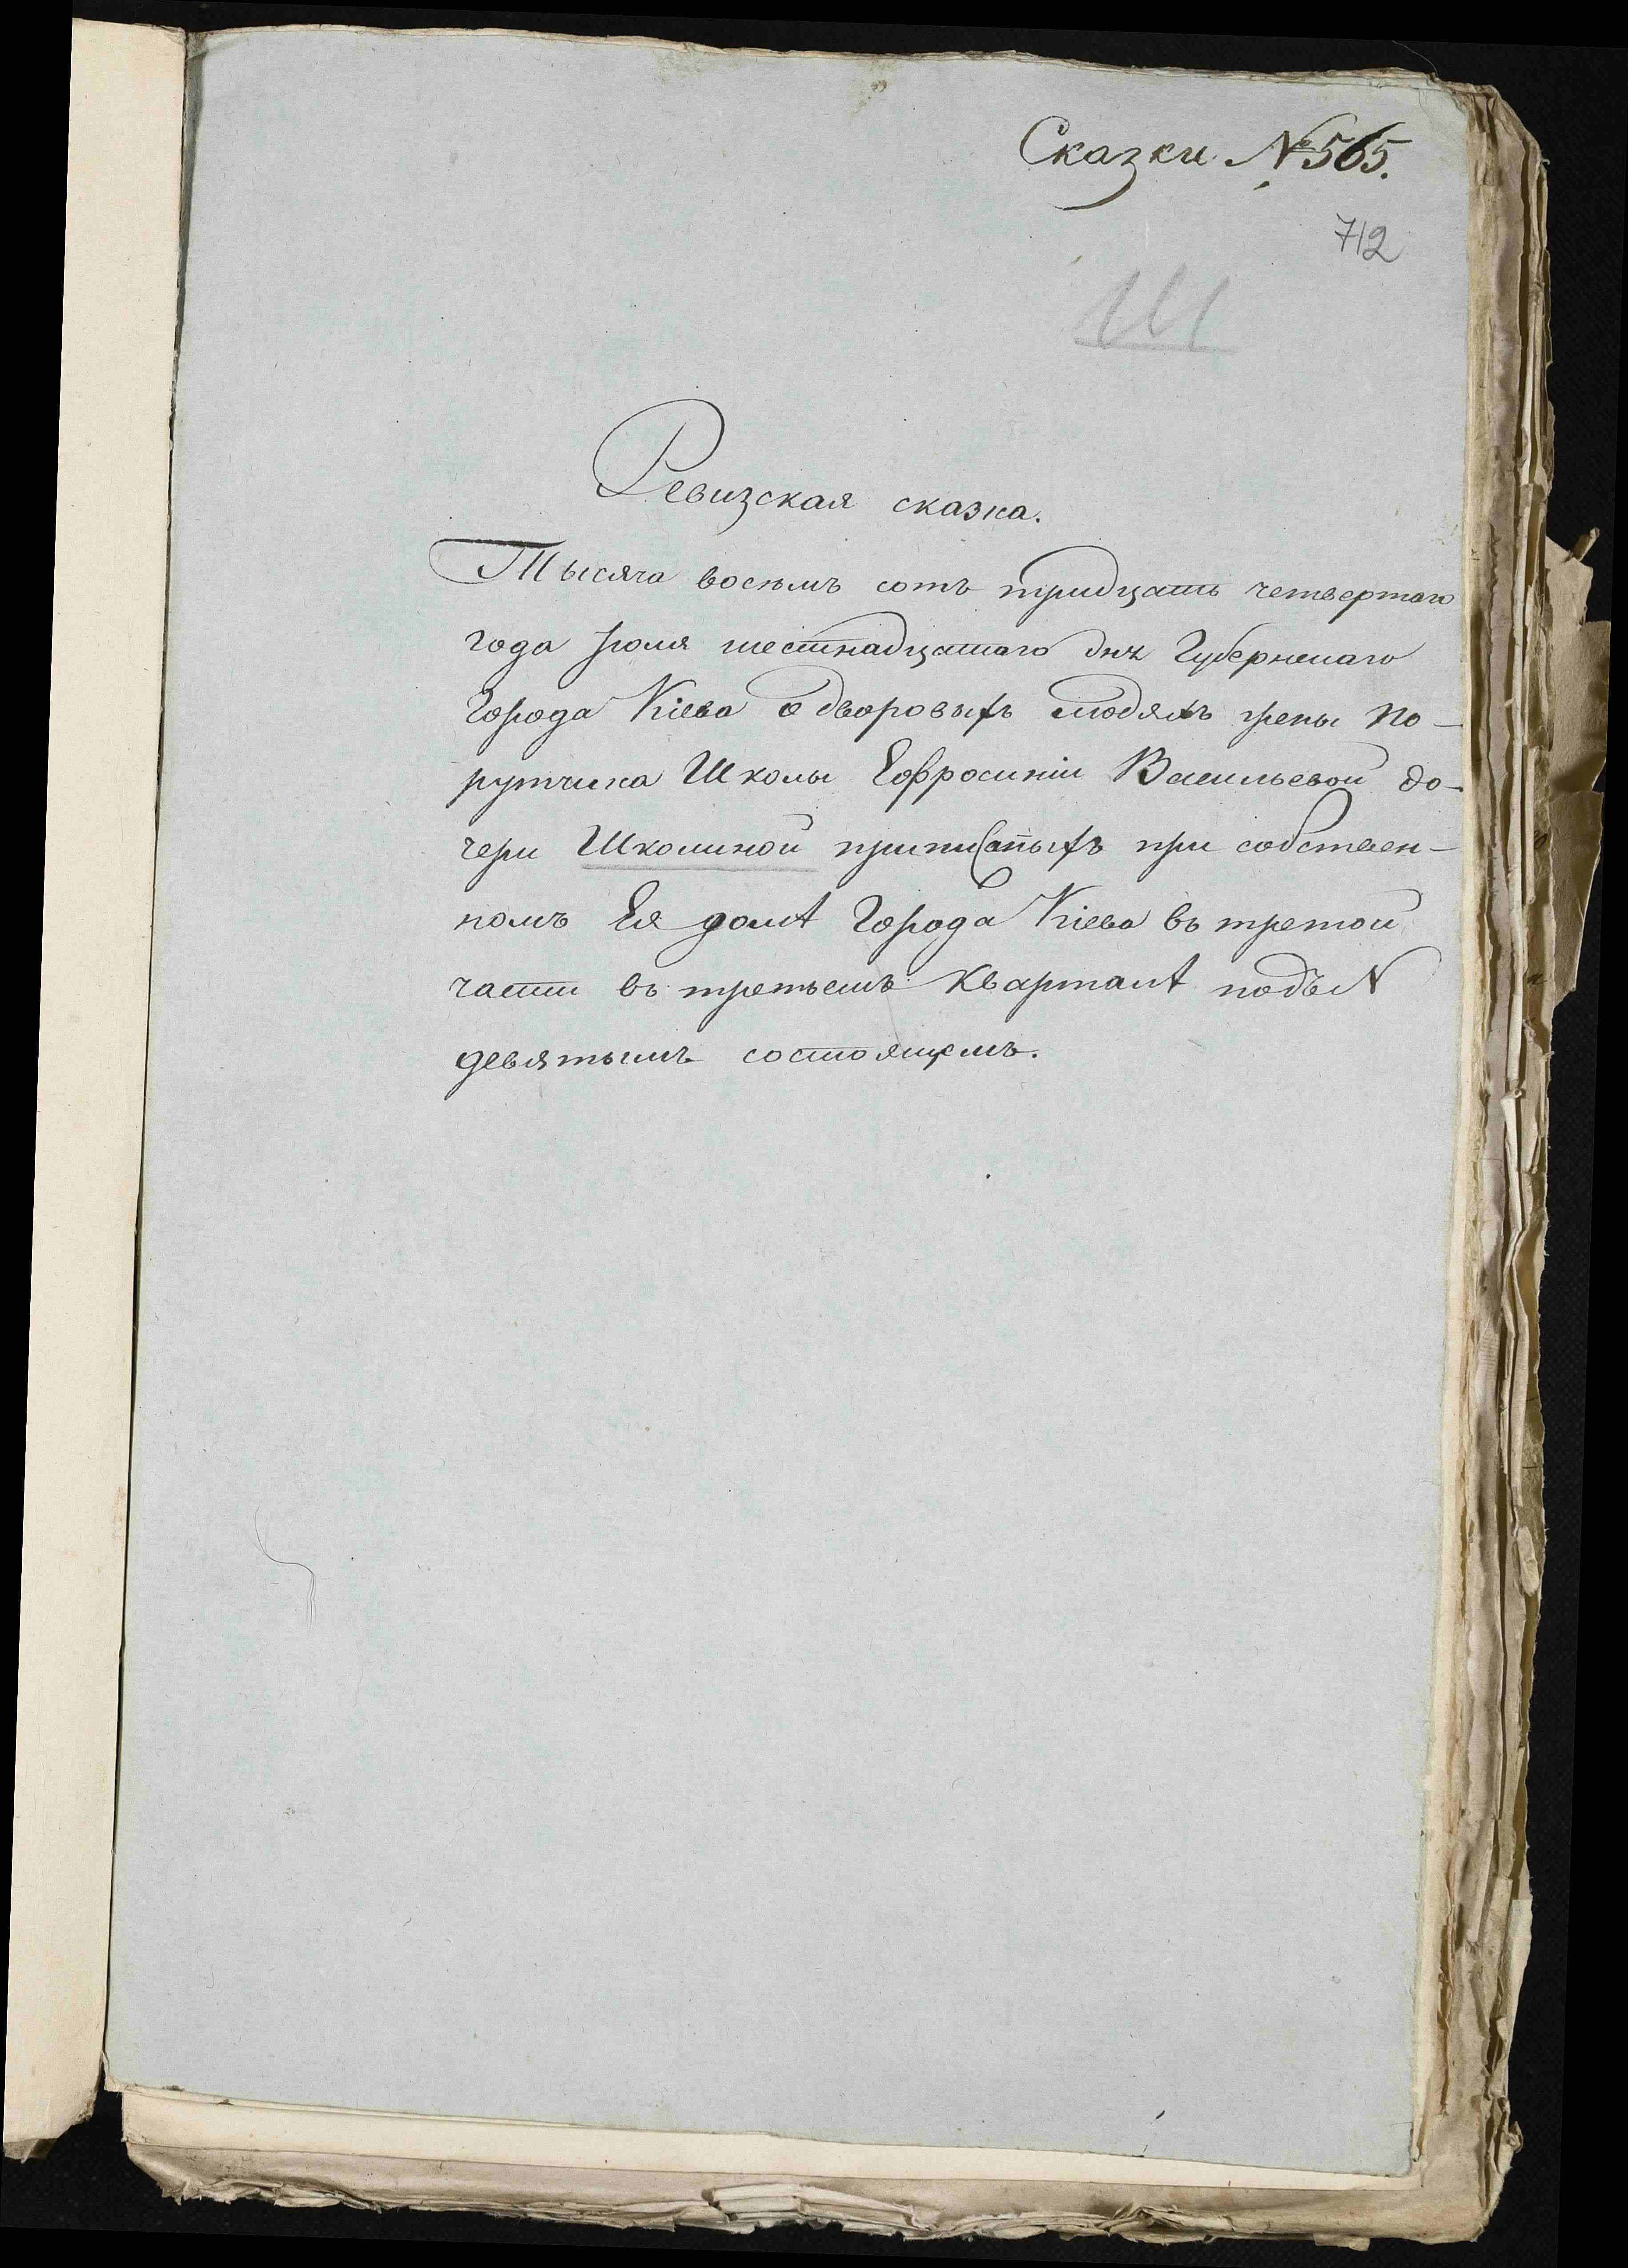 Сказки №565.
712
Ш
Ревизская сказка.
Тысяча восемь сотъ тридцать четвертаго
года Iюля шестнадцатаго дня Губернскаго
Города Кіева о дворовыхъ людяхъ жены По-
рутчика Школы Евфросиніи Васильевой до-
чери Школиной приписныхъ при собствен-
номъ Ея домѣ Города Кіева въ третой
части въ третьемъ Кварталѣ подъ N
девятымъ состоящемъ.